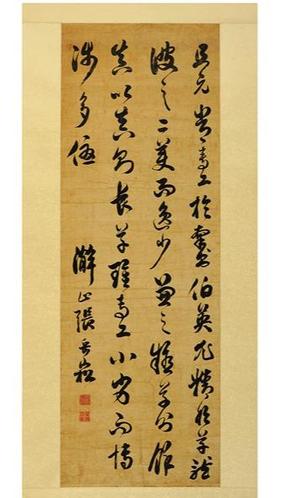 且元常專工於隸書伯英尤精於草體
彼之二美而逸少兼之擬草則餘
真比真則長草雖專工小劣而博
涉多優
澥山張岳崧